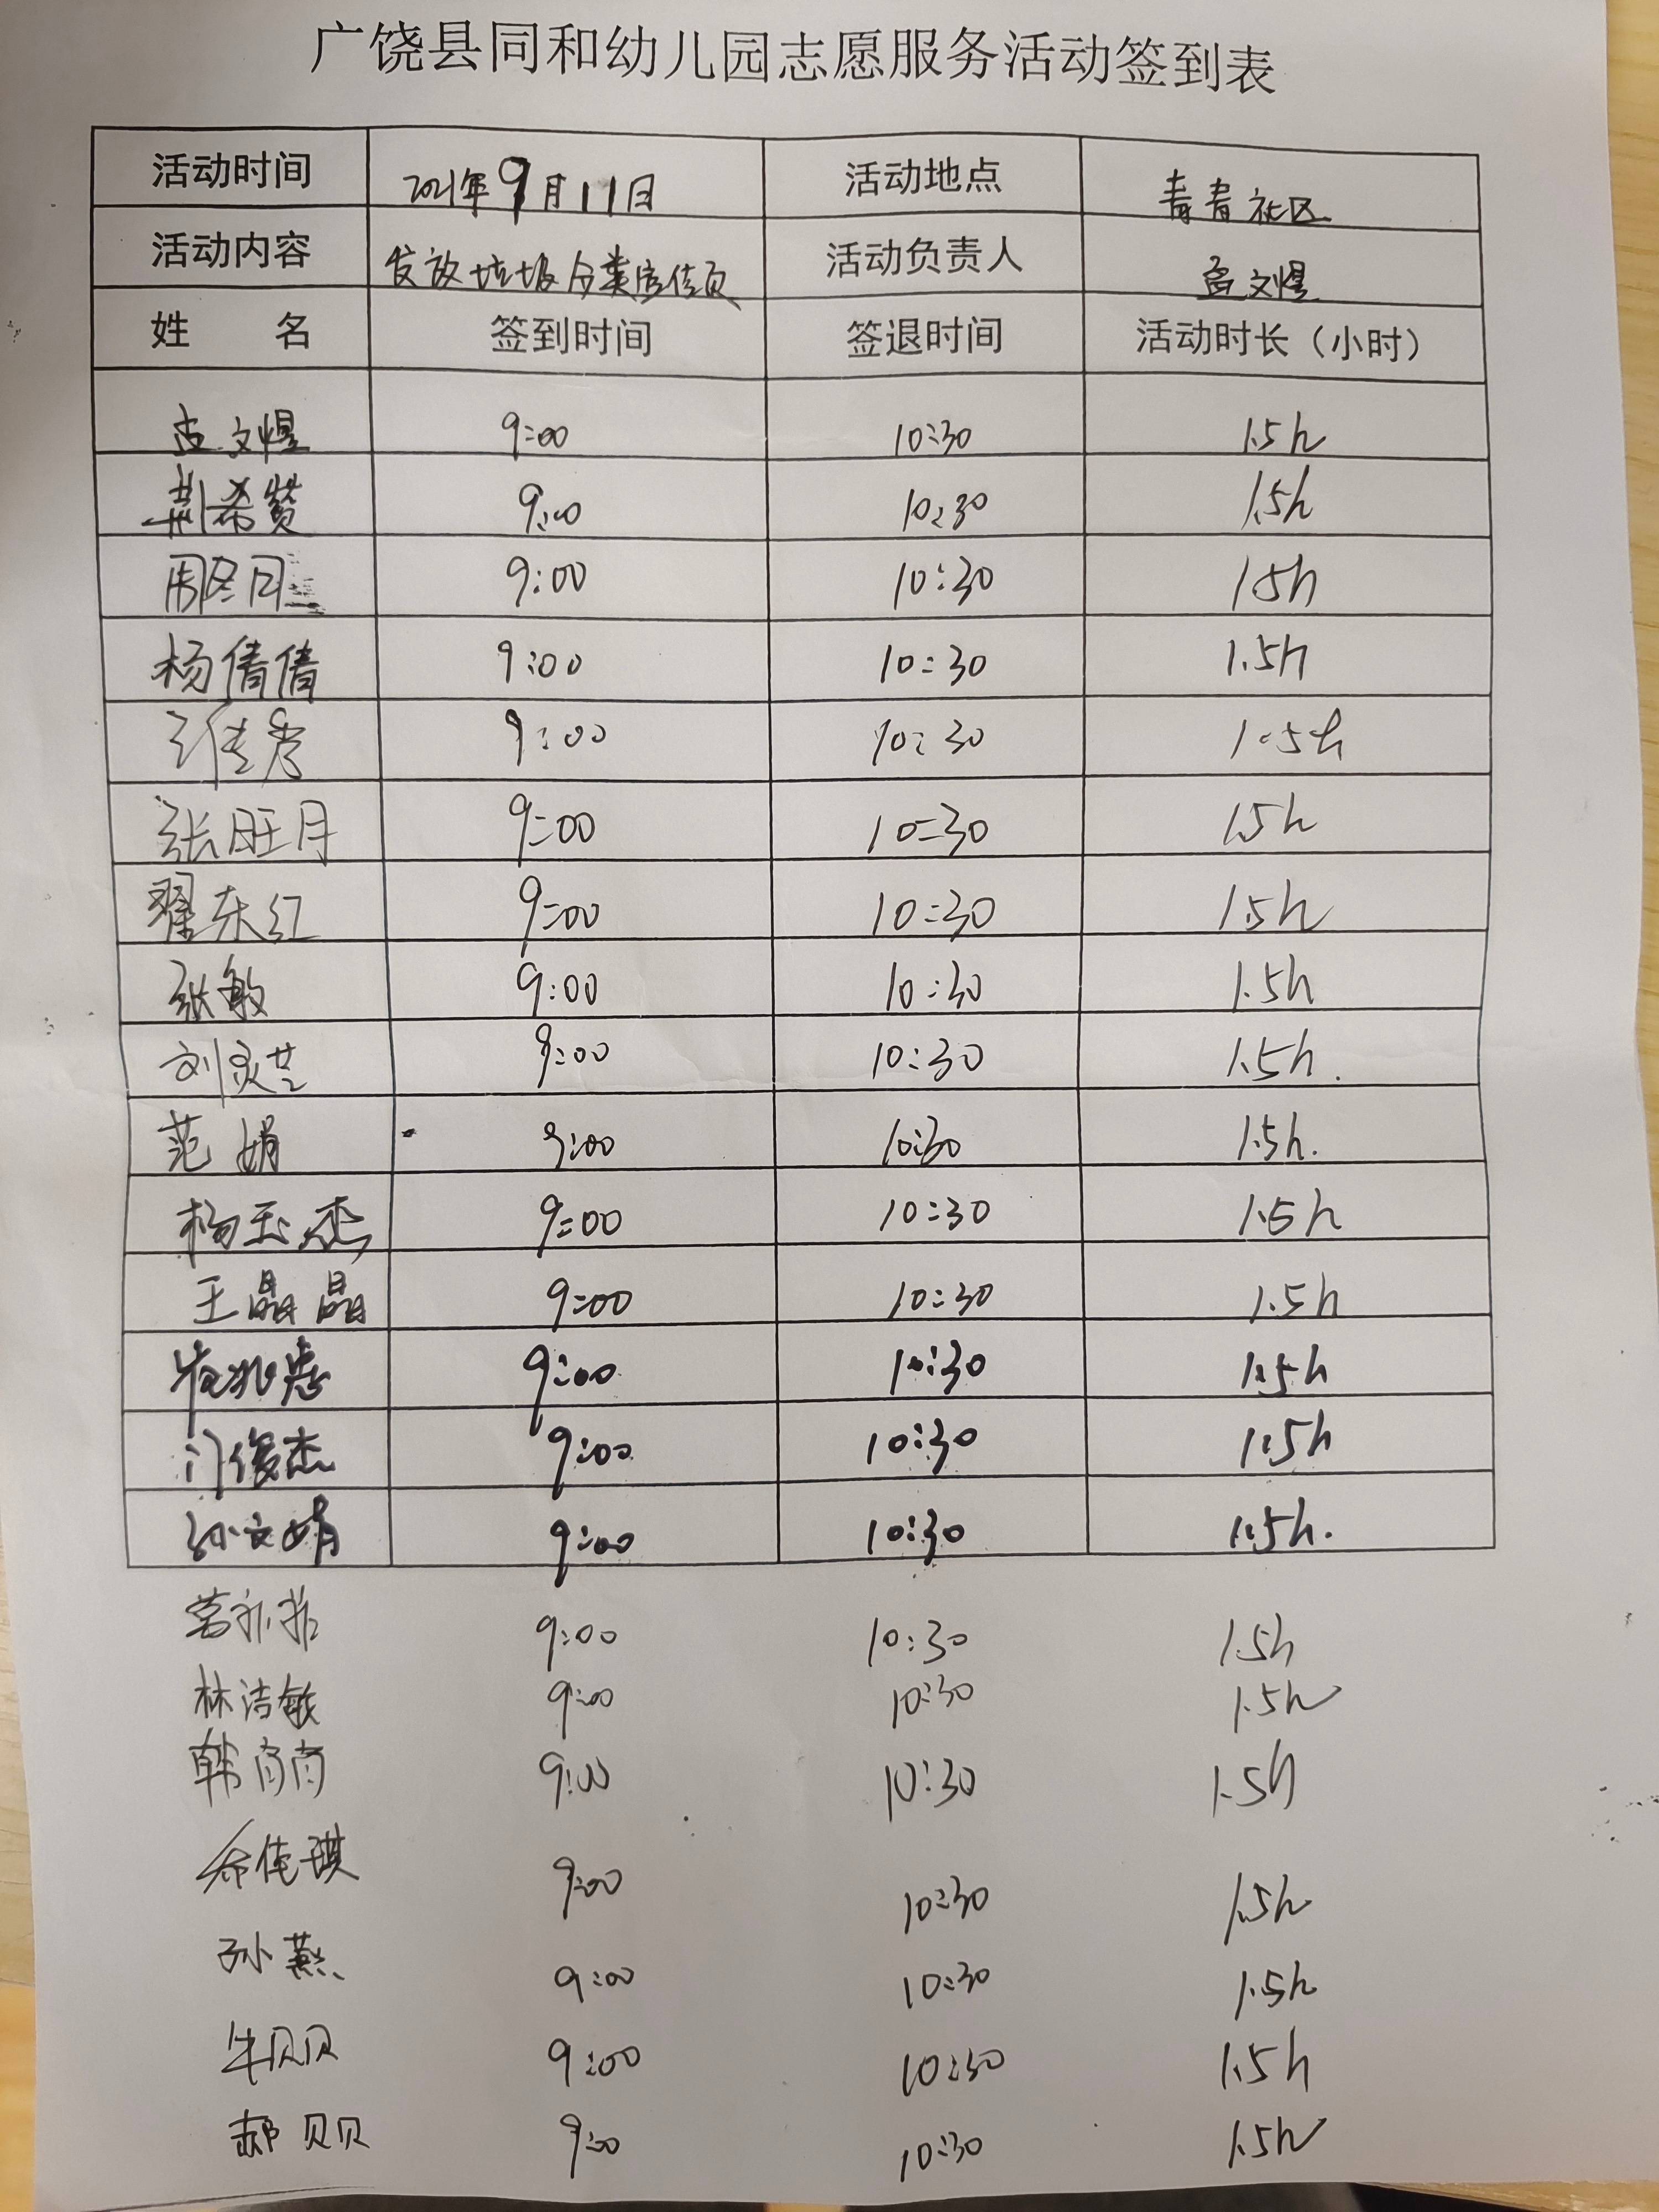 广饶县同和幼儿园志愿服务活动签到表
活动时间 2021年9月11日 活动地点 青青社区
活动内容 发放垃圾分类宣传页 活动负责人 孟文煜
姓 名 签到时间 签退时间 活动时长（小时）
孟文煜 9:00 10:30 1.5h
荆希赞 9:00 10:30 1.5h
周冬月 9:00 10:30 1.5h
杨倩倩 9:00 10:30 1.5h
9:00 10:30 1.5h
张旺月 9:00 10:30 1.5h
翟东红 9:00 10:30 1.5h
张敏 9:00 10:30 1.5h
刘灵芝 9:00 10:30 1.5h.
范娟 9:00 10:30 1.5h.
杨玉杰 9:00 10:30 1.5h
王晶晶 9:00 10:30 1.5h
9:00 10:30 1.5h
门俊杰 9:00 10:30 1.5h
孙文娟 9:00 10:30 1.5h.
9:00 10:30 1.5h
林洁敏 9:00 10:30 1.5h
韩肖肖 9:00 10:30 1.5h
佳琪 9:00 10:30 1.5h
孙燕 9:00 10:30 1.5h
牛贝贝 9:00 10:30 1.5h
郝贝贝 9:00 10:30 1.5h